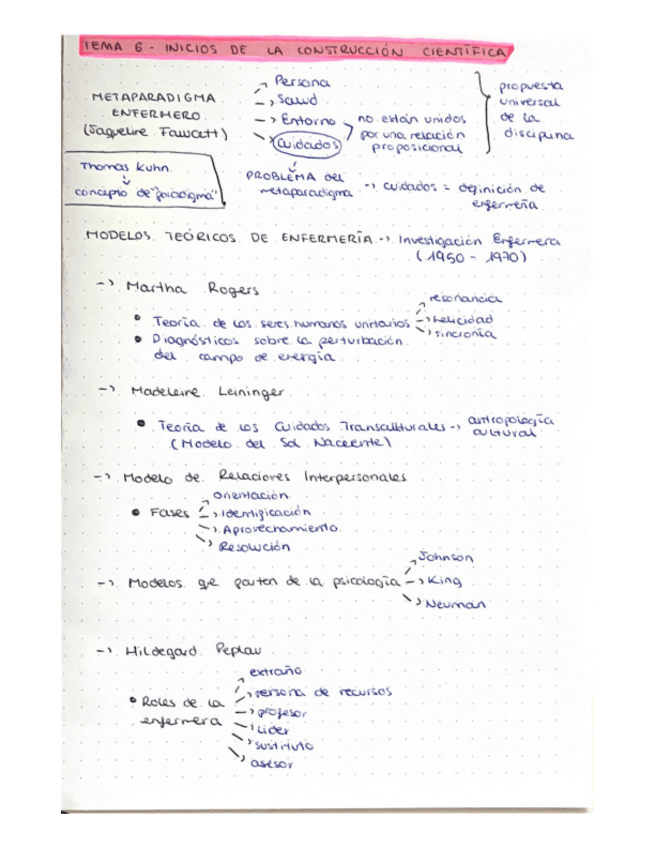 TEMA 6 - INICIOS DE LA CONSTRUCCIÓN CIENTÍFICA
METAPARADIGMA
ENFERMERO
(Jaqueline Fawcett)
Persona
Salud
Entorno
Cuidados
no están unidos
por una relación
proposicional
propuesta
universal
de la
disciplina
Thomas Kuhn
concepto de "paradigma"
PROBLEMA del
metaparadigma
→ cuidados = definición de
enfermería
MODELOS TEÓRICOS DE ENFERMERÍA → Investigación Enfermera
(1950 - 1970)
→ Martha Rogers
• Teoría de los seres humanos unitarios
resonancia
helicidad
sincronía
• Diagnósticos sobre la perturbación
del campo de energía
→ Madeleine Leininger
• Teoría de los Cuidados Transculturales → antropología
cultural
(Modelo del Sol Naciente)
→ Modelo de Relaciones Interpersonales
• Fases
Orientación
Identificación
Aprovechamiento
Resolución
→ Modelos que parten de la psicología
Johnson
King
Neuman
→ Hildegard Peplau
• Roles de la
enfermera
extraño
persona de recursos
profesor
líder
sustituto
asesor